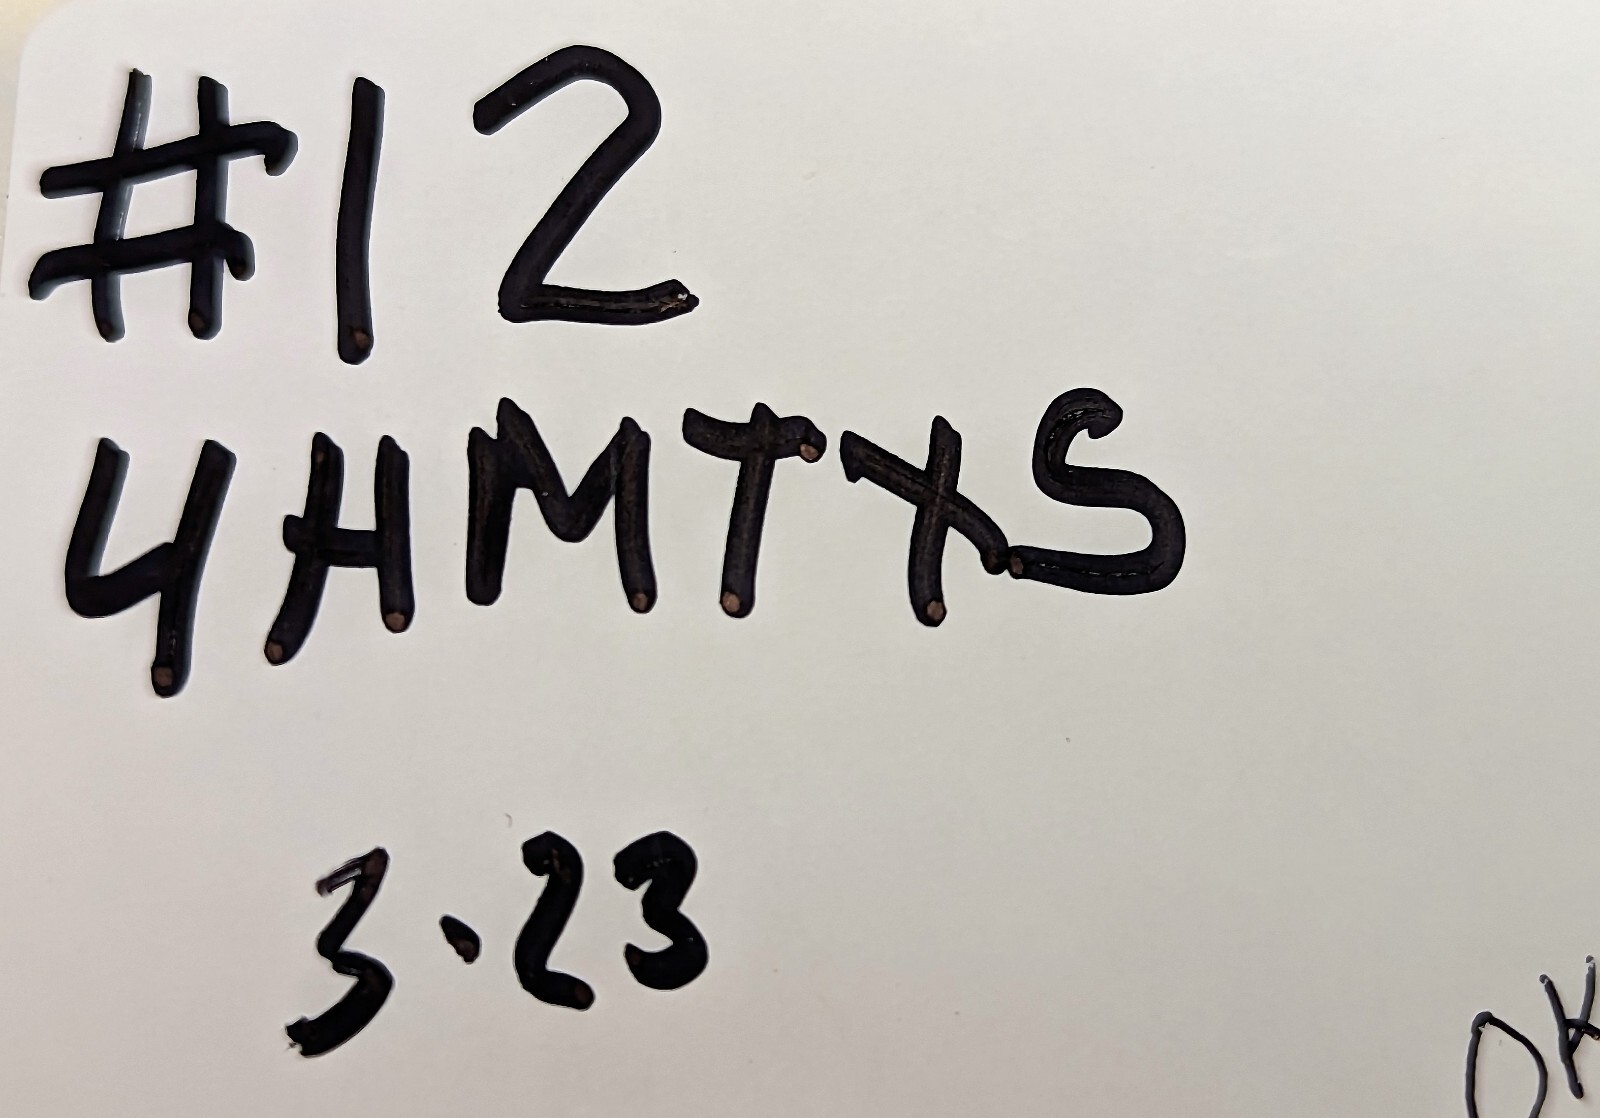 #12
4HMTXS
3.23
OK